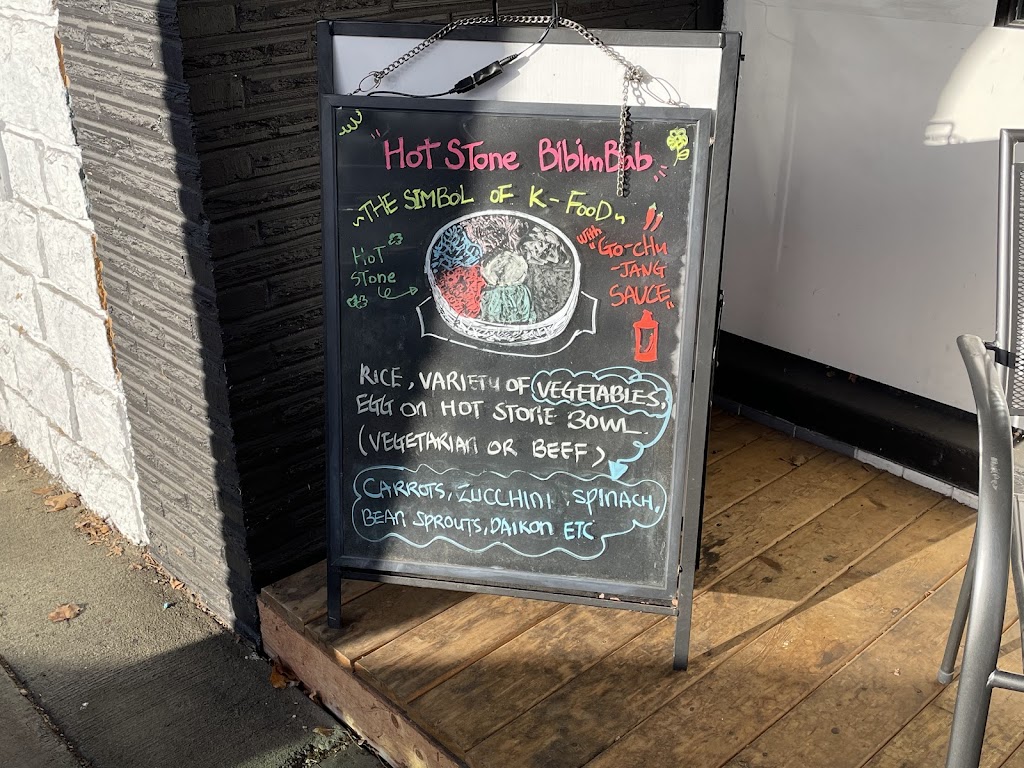 "Hot Stone BibimBab"
~THE SIMBOL OF K-FOOD~
Hot
Stone
with
"GO-CHU
-JANG
SAUCE"
RICE, VARIETY OF VEGETABLES,
EGG ON HOT STONE BOWL.
(VEGETARIAN OR BEEF)
CARROTS, ZUCCHINI, SPINACH,
BEAN SPROUTS, DAIKON ETC